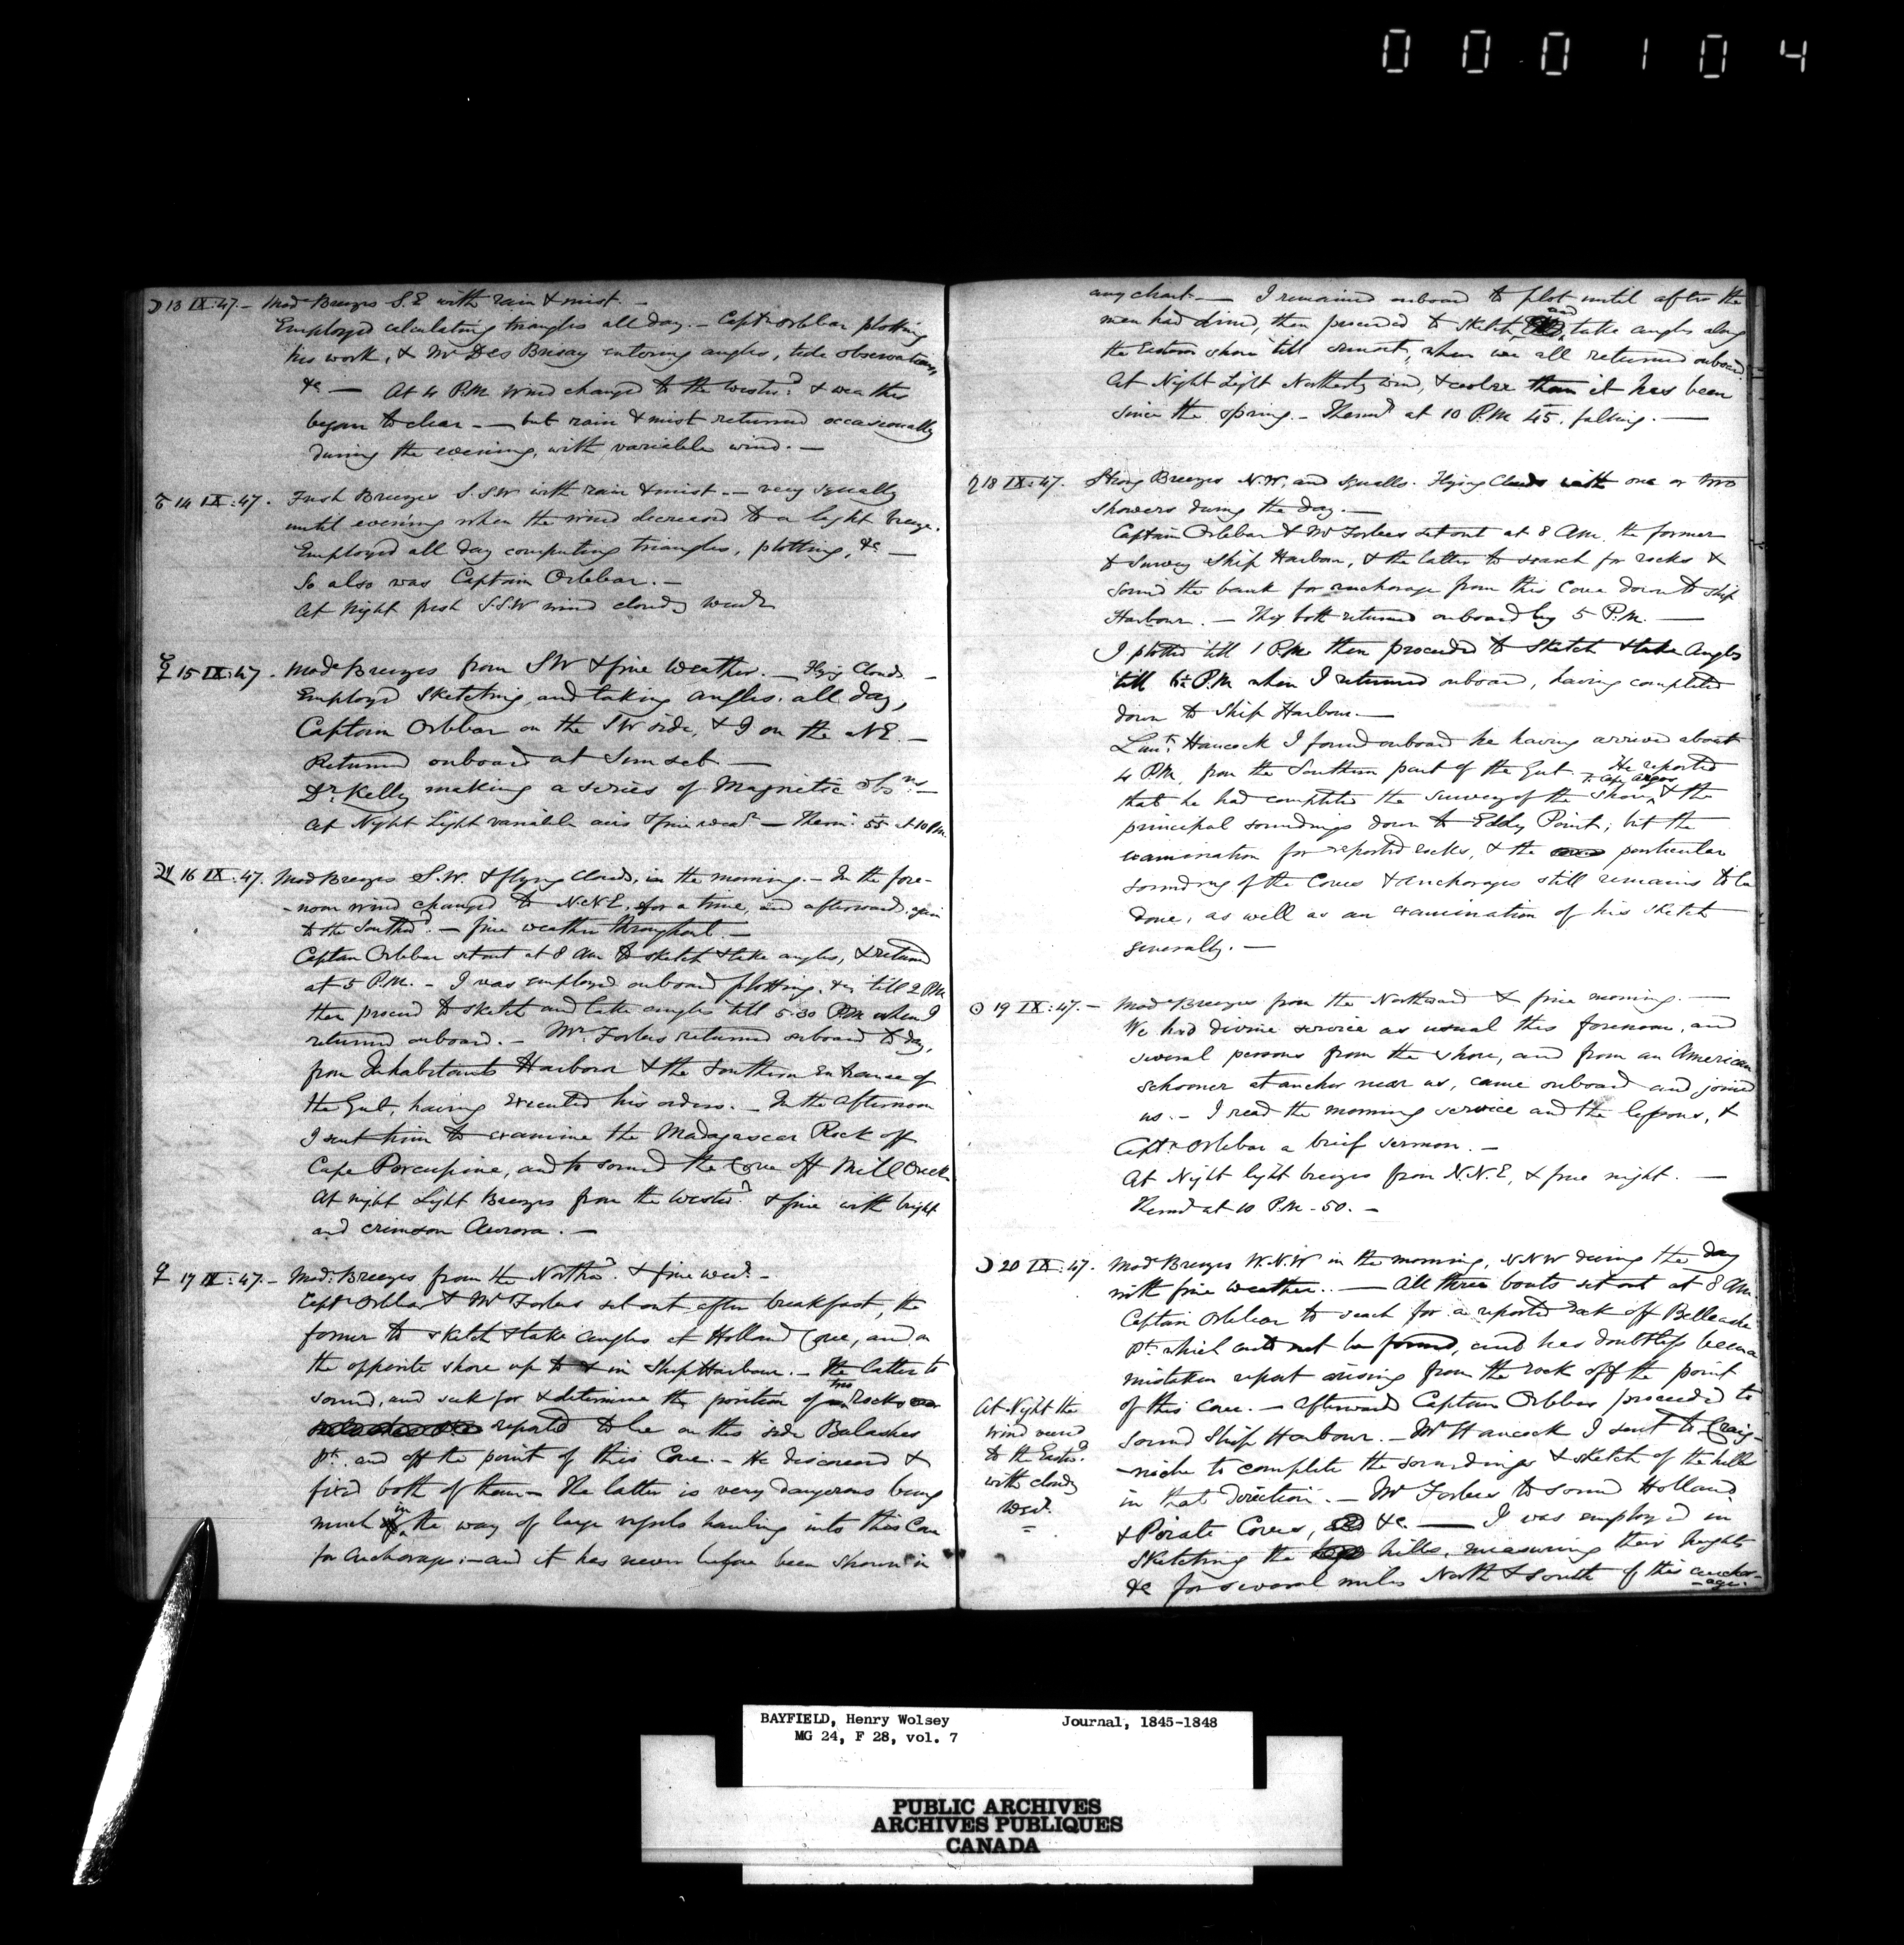 000104
☽ 13 IX:47.- Modᵉ Breezes S.E with rain & mist. -
Employed calculating triangles all day. - Captⁿ Orlebar plotting
his work, & Mr Des Brisay entering angles, tide observations,
&c — At 4 P.M. wind changed to the Westwᵈ. & weather
began to clear - — but rain & mist returned occasionally
during the evening, with variable wind. —
♂ 14 IX:47. Fresh Breezes S.SW with rain & mist - – very squally
until evening when the wind decreased to a light breeze.
Employed all day computing triangles, plotting, &c —
So also was Captain Orlebar. -
At Night fresh S.S.W wind cloudy
☿ 15 IX:47. Modᵉ Breezes from SW & fine Weather. — Flying Clouds -
Employed Sketching, and taking angles, all day,
Captain Orlebar on the SW side, & I on the NE. —
Returned onboard at Sunset —
Dr. Kelly making a series of Magnetic Obⁿˢ —
At Night Light variable airs & fine weaʳ — Therm. 55 at 10 P.M.
♃ 16 IX:47. Modᵉ Breezes S.W. & flying Clouds, in the morning. - In the fore-
-noon wind changed to N.N.E. for a time, and afterwards again
to the Southwᵈ. — fine weather throughout —
Captain Orlebar set out at 8 AM to sketch & take angles, & returned
at 5 P.M. - I was employed onboard plotting, &c, till 2 PM
then proceed to sketch and take angles till 5.30 P.M. when I
returned onboard. - Mr. Forbes returned onboard to day,
from Inhabitants Harbour & the Southern Entrance of
the Gut, having executed his orders. - In the afternoon
I sent him to examine the Madagascar Rock off
Cape Porcupine, and to sound the Cove off Mill Creek
At night Light Breezes from the Westwᵈ. & fine with bright
and crimson Aurora. —
♀ 17 IX:47.- Modᵉ. Breezes from the Northwᵈ. & fine weaʳ. -
Captⁿ Orlebar & Mr Forbes set out after breakfast, the
former to sketch & take angles at Holland Cove, and on
the opposite shore up to & in Ship Harbour. - The latter to
sound, and seek for & determine the position of two Rocks
reported to lie on this side Balaches
Pt. and off the point of this Cove. - He discovered &
fixed both of them - The latter is very dangerous being
much in the way of large vessels hauling into this Cove
for anchorage: - and it has never before been shown in
any chart. — I remained onboard to plot until after the
men had dined, then proceeded to sketch and take angles along
the Eastern shore till sunset, when we all returned onboard.
At Night Light Northerly wind, & cooler than it has been
since the spring. - Thermʳ at 10 P.M. 45, falling. —
♄ 18 IX:47. Strong Breezes N.W. and squalls. Flying Clouds with one or two
showers during the day. —
Captain Orlebar & Mr Forbes set out at 8 AM. the former
to survey Ship Harbour, & the latter to search for rocks &
sound the bank for anchorage from this Cove down to Ship
Harbour. — They both returned onboard by 5 P.M. —
I plotted till 1 P.M. then proceeded to sketch & take Angles
till P.M. when I returned onboard, having completed
down to Ship Harbour. —
Lieut. Hancock I found onboard he having arrived about
4 P.M. from the Southern part of the Gut. He reported
that he had completed the survey of the shore, to Cape Argos & the
principal soundings down to Eddy Point; but the
examination for reported rocks, & the particular
sounding of the Coves & anchorages still remains to be
done, as well as an examination of his sketch
generally. —
☉ 19 IX:47. - Modᵉ Breezes from the Northward & fine morning. —
We had divine service as usual this forenoon, and
several persons from the shore, and from an American
schooner at anchor near us, came onboard and joined
us. - I read the morning service and the lessons, &
Captⁿ Orlebar a brief sermon. -
At Night light breezes from N.N.E. & fine night. —
Thermʳ at 10 P.M. - 50. -
☽ 20 IX:47. Modᵉ Breezes W.N.W in the morning, NNW during the day
with fine weather. — All three boats set out at 8 AM.
Captain Orlebar to search for a reported rock off Belleache
Pt. which could not be found, and has doubtless been a
mistaken report arising from the rock off the point
of this cove. - Afterwards Captain Orlebar proceeded to
sound Ship Harbour. - Mr Hancock I sent to Craig-
-niche to complete the soundings & sketch of the hills
in that direction. - Mr Forbes to sound Holland
& Pirate Coves, &c. — I was employed in
sketching the hills, measuring their heights
&c for several miles North & South of this anchor-
-age.
At Night the
wind veered
to the Eastwᵈ.
with cloudy
weaʳ.
BAYFIELD, Henry Wolsey Journal, 1845-1848
MG 24, F 28, vol. 7
PUBLIC ARCHIVES
ARCHIVES PUBLIQUES
CANADA